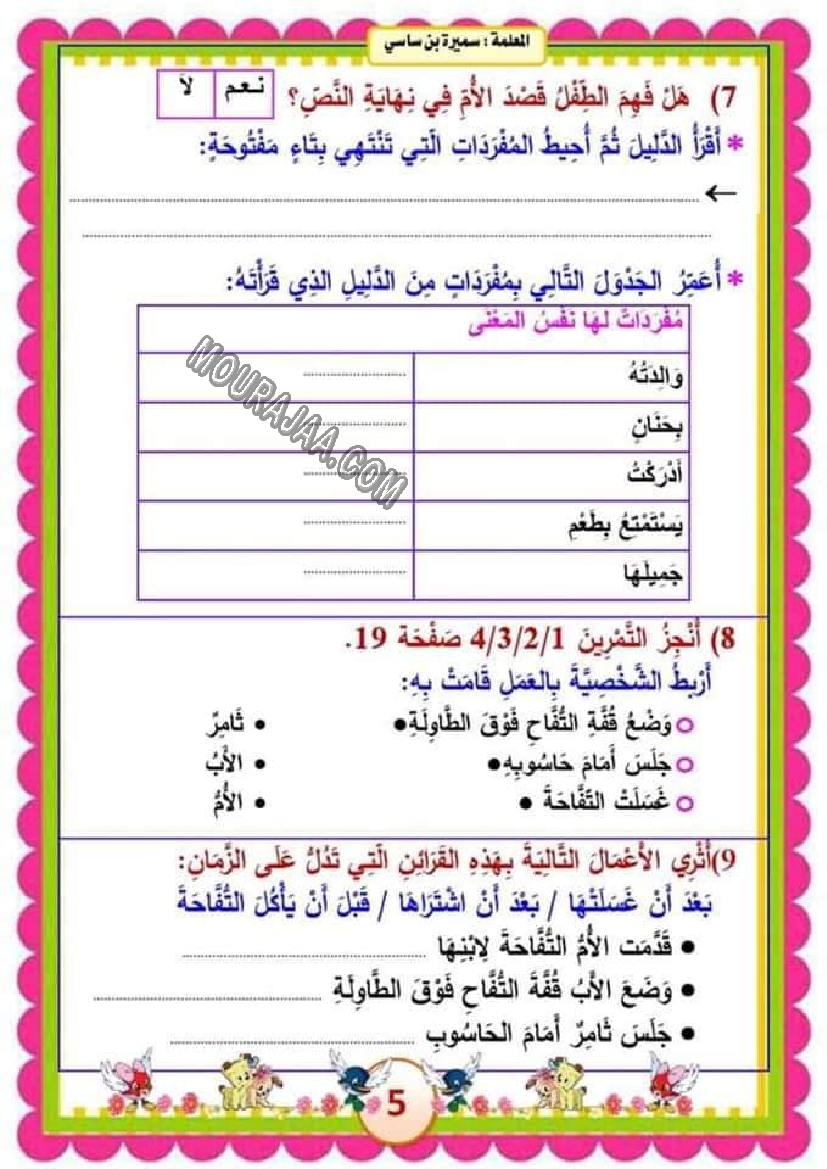 المعلمة : سميرة بن ساسي
7) هَلْ فَهِمَ الطِّفْلُ قَصْدَ الأُمِّ فِي نِهَايَةِ النَّصِّ؟ نعم لاَ
* أَقْرَأُ الدَّلِيلَ ثُمَّ أُحِيطُ المُفْرَدَاتِ الّتِي تَنْتَهِي بِتَاءٍ مَفْتُوحَةٍ:
←
* أُعَمِّرُ الجَدْوَلَ التَّالِي بِمُفْرَدَاتٍ مِنَ الدَّلِيلِ الذِي قَرَأْتَهُ:
مُفْرَدَاتٌ لَهَا نَفْسُ المَعْنَى
وَالِدَتُهُ
بِحَنَانِ
أَدْرَكْتُ
يَسْتَمْتِعُ بِطَعْمِ
جَمِيلَهَا
MOURAJAA.COM
8) أُنْجِزُ التَّمْرِينَ 4/3/2/1 صَفْحَة 19.
أَرْبِطُ الشَّخْصِيَّةَ بِالعَمَلِ قَامَتْ بِهِ:
وَضْعُ قُفَّةِ التُّفَّاحِ فَوْقَ الطَّاوِلَةِ● • ثَامِرٌ
جَلَسَ أَمَامَ حَاسُوبِهِ● • الأَبُ
غَسَلَتْ التُفَّاحَةَ ● • الأُمُّ
9)أُثْرِي الأَعْمَالَ التَّالِيَةَ بِهَذِهِ القَرَائِنِ الّتِي تَدُلُّ عَلَى الزَّمَانِ:
بَعْدَ أَنْ غَسَلَتْهَا / بَعْدَ أَنْ اشْتَرَاهَا / قَبْلَ أَنْ يَأْكُلَ التُّفَّاحَةَ
● قَدَّمَت الأُمُّ التُّفَّاحَةَ لِابْنِهَا
● وَضَعَ الأَبُ قُفَّةَ التُّفَّاحِ فَوْقَ الطَّاوِلَةِ
● جَلَسَ ثَامِرٌ أَمَامَ الحَاسُوبِ
5